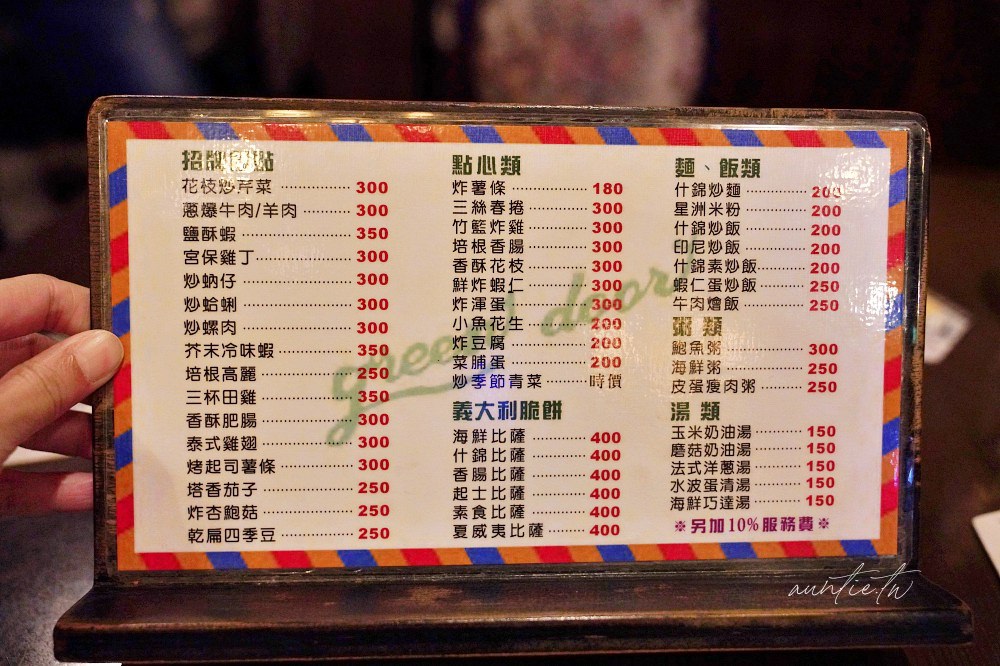 招牌餐點
花枝炒芹菜 ………… 300
蔥爆牛肉/羊肉 ………… 300
鹽酥蝦 ………… 350
宮保雞丁 ………… 300
炒蚋仔 ………… 300
炒蛤蜊 ………… 300
炒螺肉 ………… 300
芥末冷味蝦 ………… 350
培根高麗 ………… 250
三杯田雞 ………… 350
香酥肥腸 ………… 300
泰式雞翅 ………… 300
烤起司薯條 ………… 300
塔香茄子 ………… 250
炸杏鮑菇 ………… 250
乾扁四季豆 ………… 250
點心類
炸薯條 ………… 180
三絲春捲 ………… 300
竹籃炸雞 ………… 300
培根香腸 ………… 300
香酥花枝 ………… 300
鮮炸蝦仁 ………… 300
炸渾蛋 ………… 300
小魚花生 ………… 200
炸豆腐 ………… 200
菜脯蛋 ………… 200
炒季節青菜 ………… 時價
義大利脆餅
海鮮比薩 ………… 400
什錦比薩 ………… 400
香腸比薩 ………… 400
起士比薩 ………… 400
素食比薩 ………… 400
夏威夷比薩 ………… 400
麵、飯類
什錦炒麵 ………… 200
星洲米粉 ………… 200
什錦炒飯 ………… 200
印尼炒飯 ………… 200
什錦素炒飯 ………… 200
蝦仁蛋炒飯 ………… 250
牛肉燴飯 ………… 250
粥 類
鮑魚粥 ………… 300
海鮮粥 ………… 250
皮蛋瘦肉粥 ………… 250
湯 類
玉米奶油湯 ………… 150
磨菇奶油湯 ………… 150
法式洋蔥湯 ………… 150
水波蛋清湯 ………… 150
海鮮巧達湯 ………… 150
※另加10%服務費※
green door!
auntie.tw